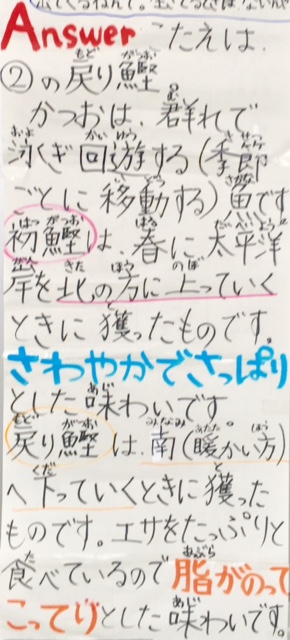 Answer こたえは、
②の戻り鰹
かつおは、群れで
泳ぎ回遊する(季節
ごとに移動する)魚です
初鰹は、春に太平洋
岸を北の方に上っていく
ときに獲ったものです。
さわやかでさっぱり
とした味わいです。
戻り鰹は、南(暖かい方)
へ下っていくときに獲った
ものです。エサをたっぷりと
食べているので脂がのって
こってりとした味わいです。